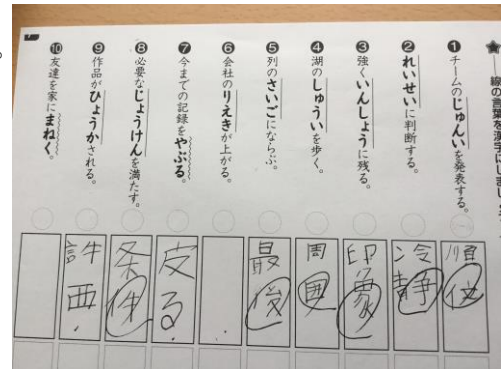 線の言葉を漢字にしまし
❶ チームのじゅんいを発表する。
❷ れいせいに判断する。
❸ 強くいんしょうに残る。
❹ 湖のしゅういを歩く。
❺ 列のさいごにならぶ。
❻ 会社のりえきが上がる。
❼ 今までの記録をやぶる。
❽ 必要なじょうけんを満たす。
❾ 作品がひょうかされる。
❿ 友達を家にまねく。
順位
冷静
印象
周囲
最後
皮る
条件